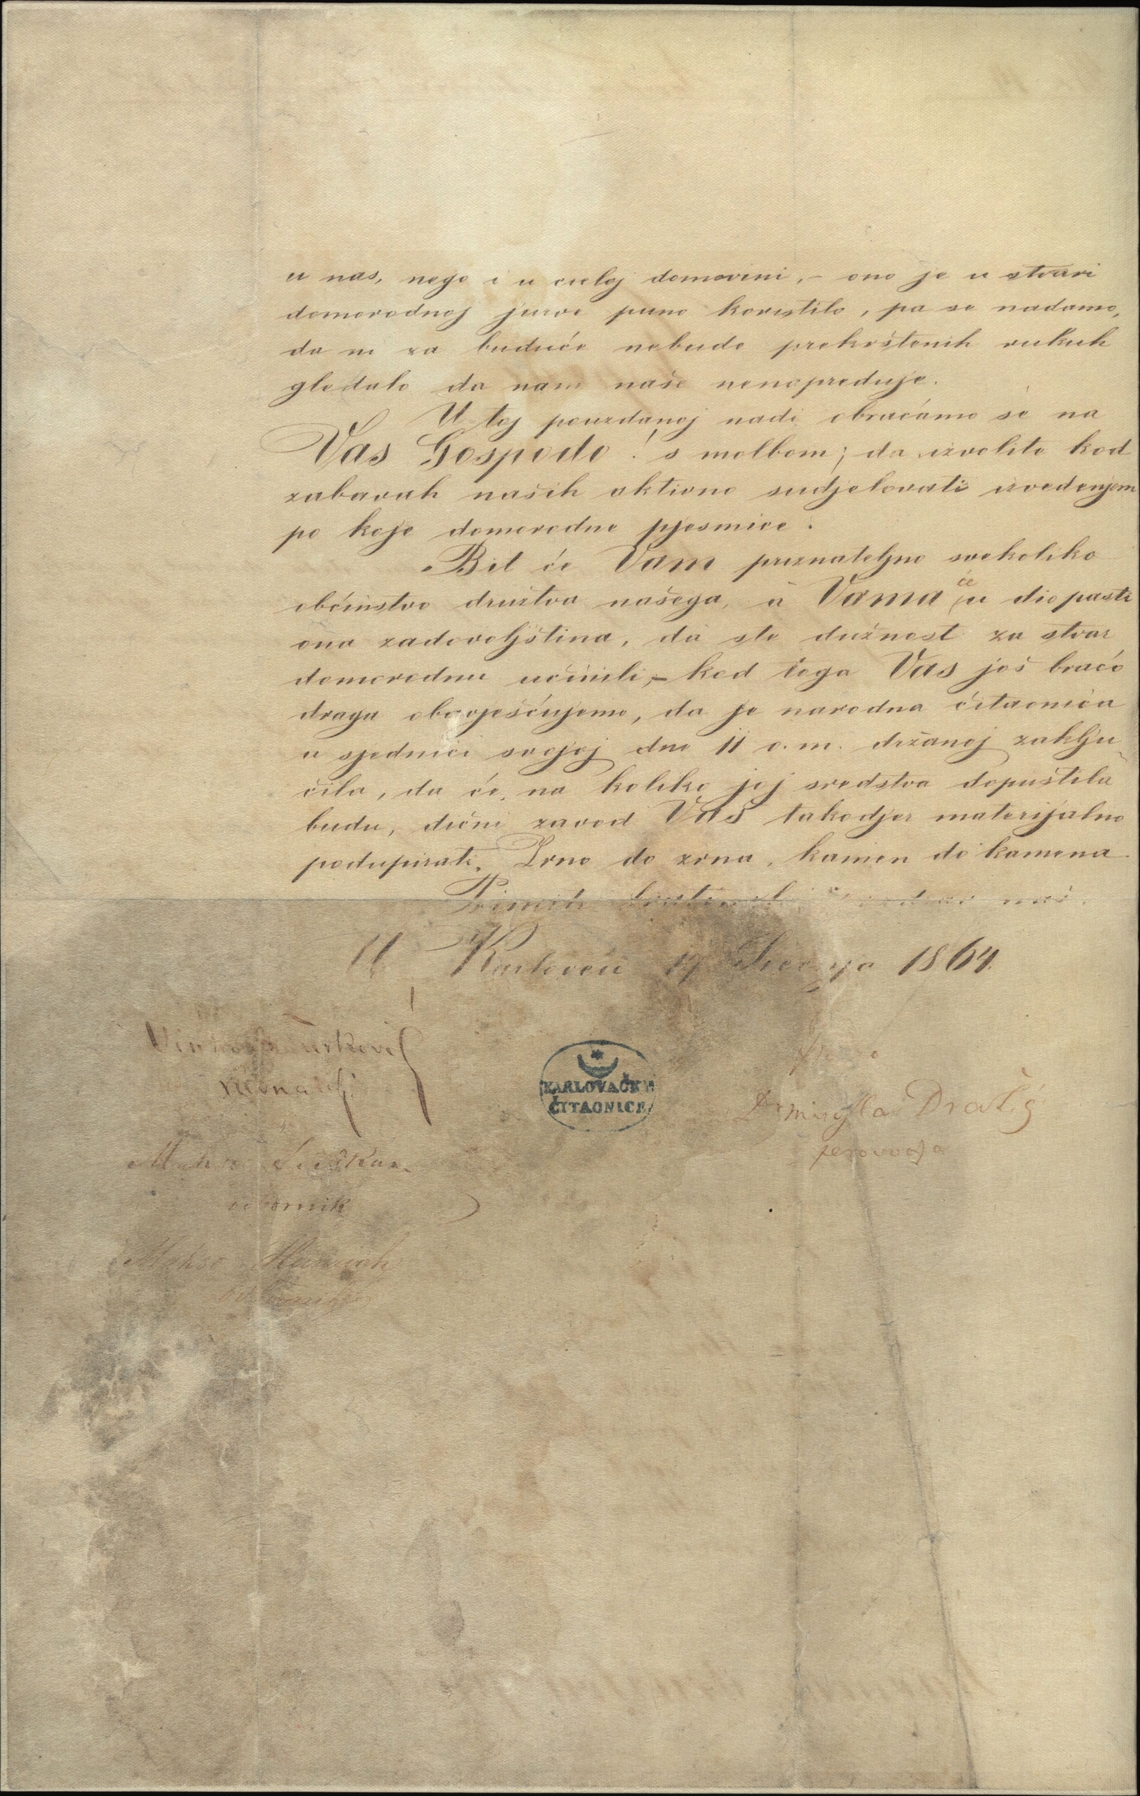 u nas, nego i u cieloj domovini, – ono je u stvari
domorodnoj jurve puno koristilo, pa se nadamo,
da ni za buduće nebude prekrštenih rukuh
gledalo da nam naše nenapreduje.
U toj pouzdanoj nadi obraćamo se na
Vas Gospodo! s molbom; da izvolite kod
zabavah naših aktivno sudjelovati izvedenjem
po koje domorodne pjesmice.
Bit će Vam priznateljno svekoliko
občinstvo družtva našega, a Vama će u dio pasti
ona zadovoljština, da ste dužnost za stvar
domorodnu učinili, – kod toga Vas još braćo
draga obavješćujemo, da je narodna čitaonica
u sjednici svojoj dne 11 o. m. držanoj zaklju-
čila, da će, na koliko joj sredstva dopuštala
budu, dični zavod Vaš takodjer materijalno
podupirati. Zrno do zrna, kamen do kamena.
Primite naš.
U Karlovcu 17 1864.
Vinko
ravnatelj
KARLOVAČKE
ČITAONICE
Dražić
perovodja
odbornik
Makso